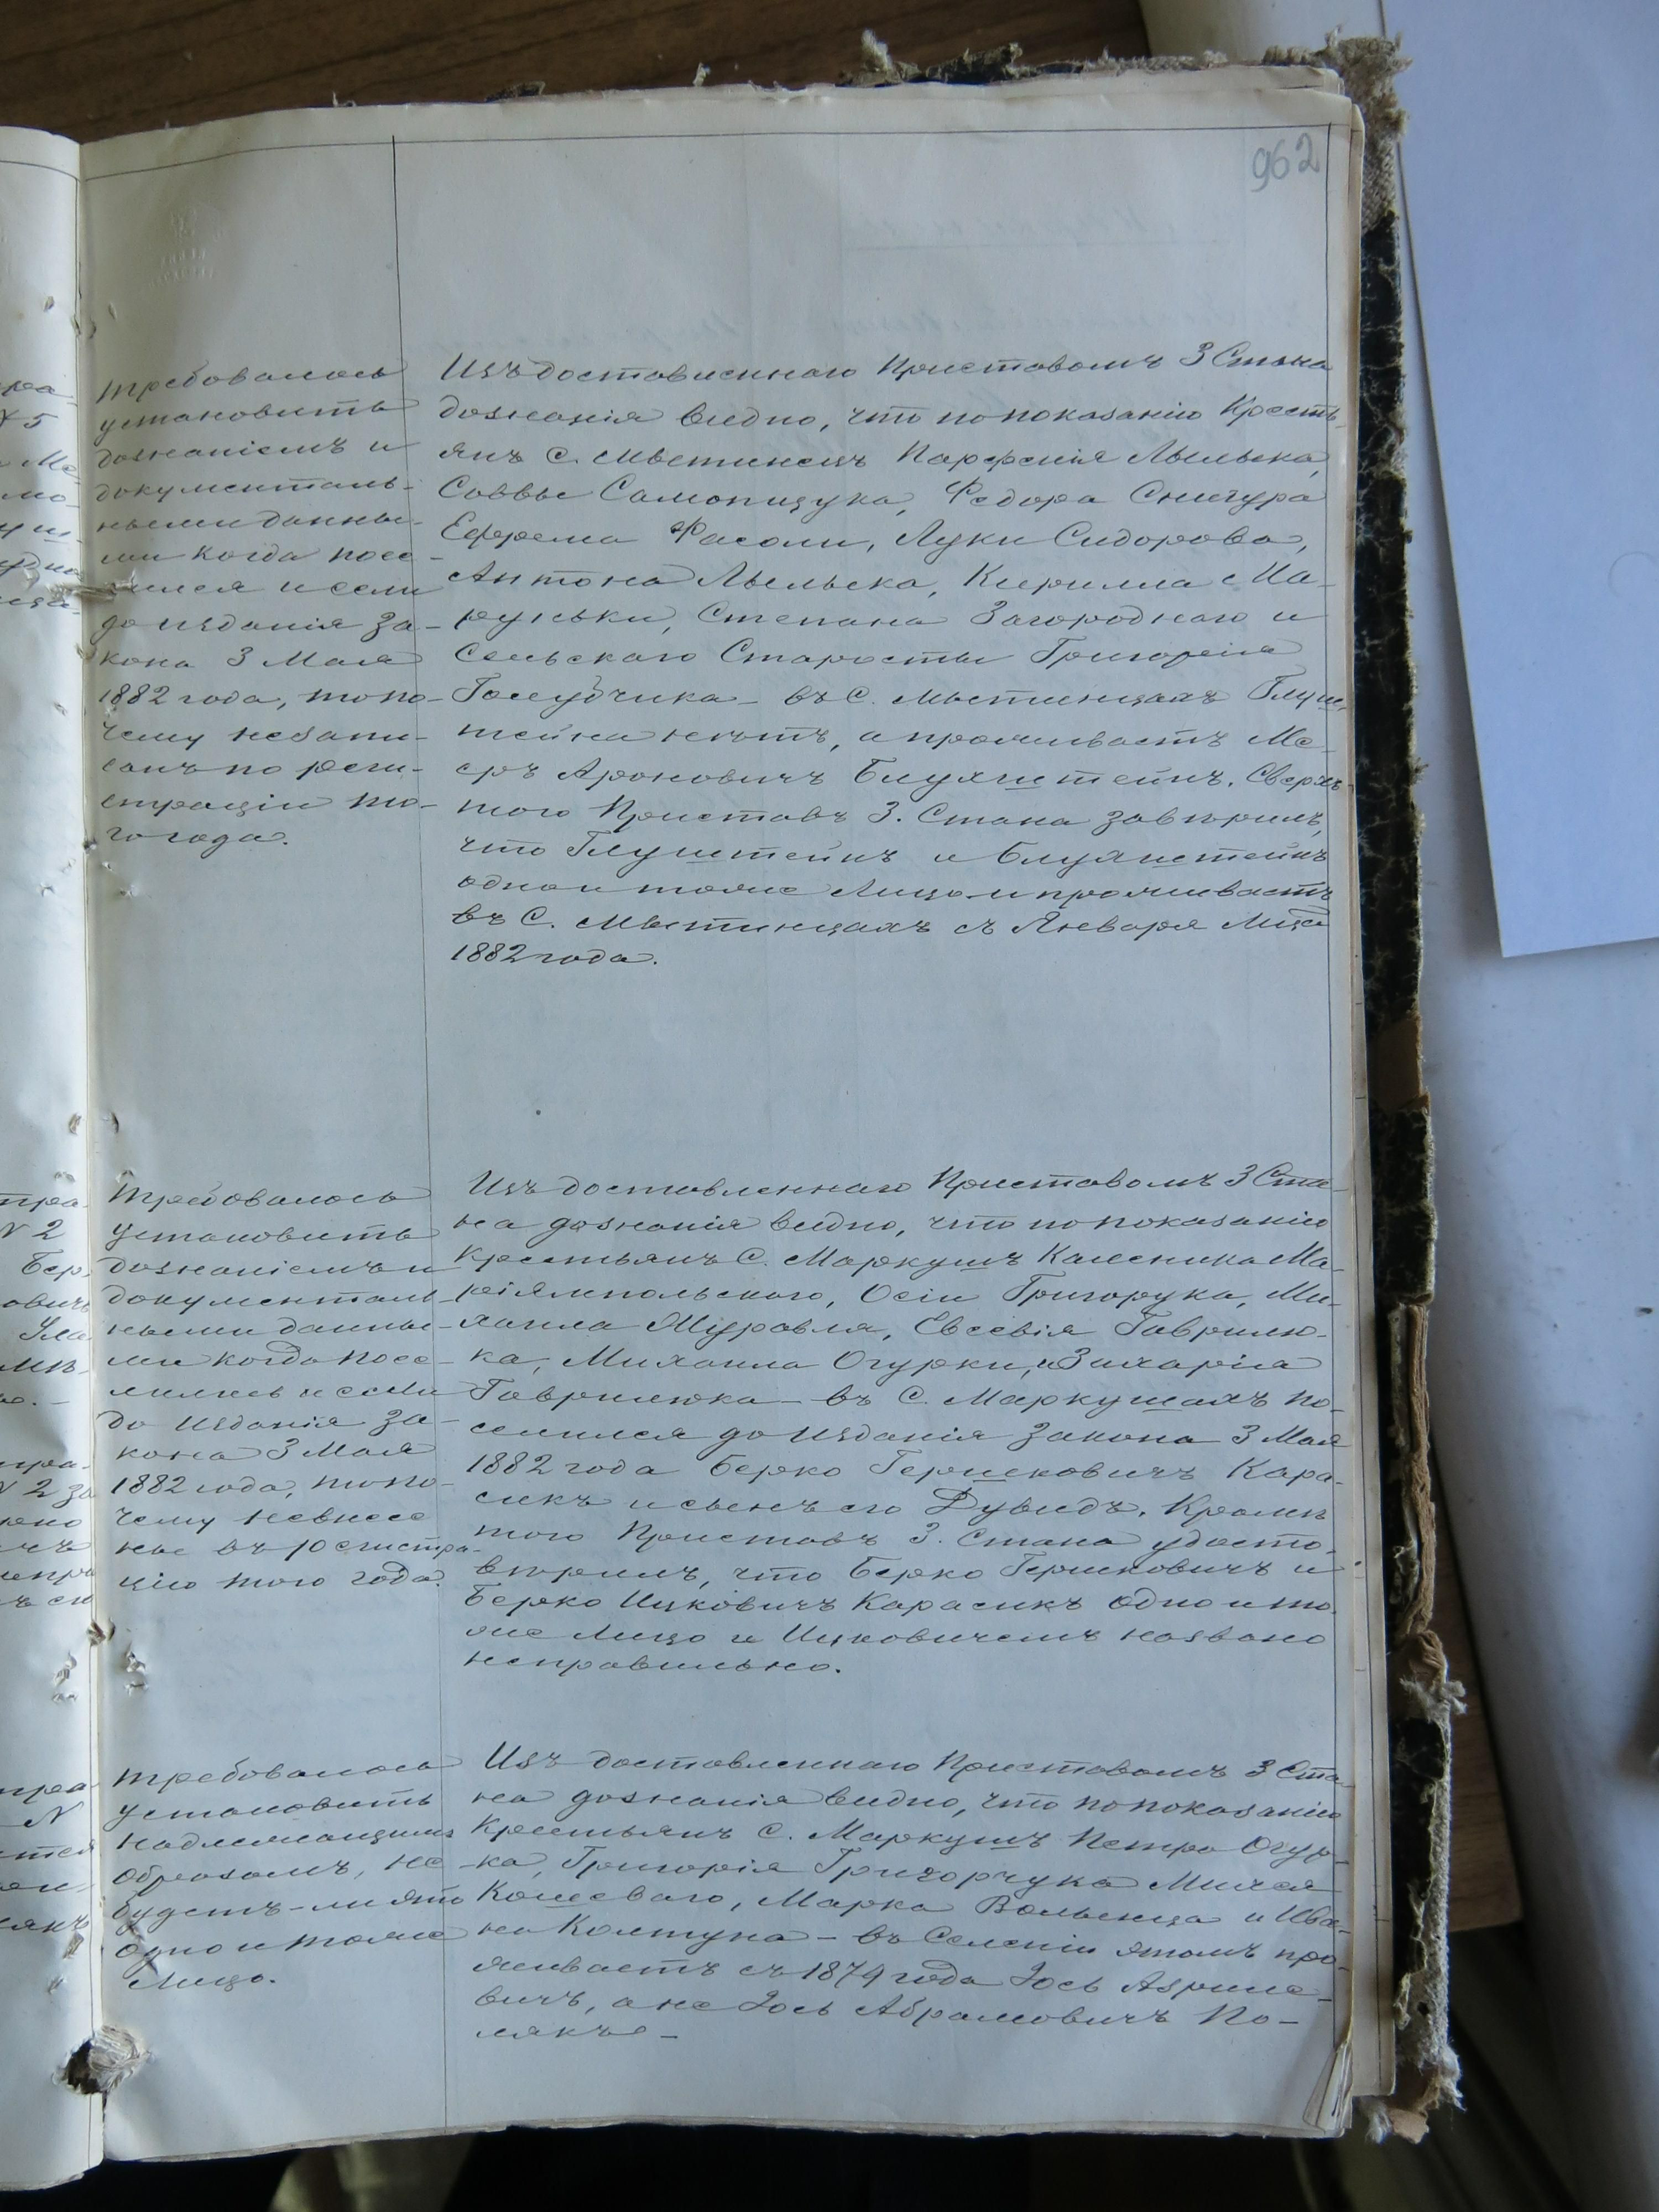 962
Требовалось
установить
дознаніемъ и
документаль-
ными данны-
ми когда посе-
лился и если
до изданія за-
кона 3 Мая
1882 года, то по-
чему незапи-
санъ по реги-
страціи то-
го года.
Изъ доставленнаго Приставомъ 3 Стана
дознанія видно, что по показанію Кресть-
янъ С. Мытинецъ Парфенія Лыльека,
Саввы Самопицука, Федора Снигура
Ефрема Фасоли, Луки Сидорова,
Антона Лыльека, Кирилла Ма-
руньки, Степана Загороднаго и
Сельскаго Старосты Григорія
Голубчика – въ С. Мытинцахъ Глуш-
тейна нѣтъ, а проживаетъ Ме-
еръ Ароновичъ Блуяштейнъ. Сверхъ
того Приставъ 3. Стана завѣрилъ,
что Глуштейнъ и Блуяштейнъ
одно и тоже Лицо и проживаетъ
въ С. Мытинцахъ съ Января М-ца
1882 года.
Требовалось
установить
дознаніемъ и
документаль-
ными данны-
ми когда посе-
лились и если
до изданія за-
кона 3 Мая
1882 года, то по-
чему невнесе
ны въ регистра-
цію того года.
Изъ доставленнаго Приставомъ 3 Ста-
на дознанія видно, что по показанію
Крестьянъ С. Маркушъ Каленика Ма-
ріямпольского, Осіи Григорука, Ми-
хаила Муравля, Евсевія Гаврилю-
ка, Михаила Огурки, и Захарія
Гаврилюка – въ С. Маркушахъ по-
селился до изданія Закона 3 Мая
1882 года Берко Гершковичъ Кара-
сикъ и сынъ его Дувидъ. Кромѣ
того Приставъ 3. Стана удосто-
вѣрилъ, что Берко Гершковичъ и
Берко Ицковичъ Карасикъ одно и то-
же Лицо и Ицковичемъ названо
неправильно.
Требовалось
установить
надлежащимъ
образомъ, не
будетъ-ли это
одно и тоже
Лицо.
Изъ доставленнаго Приставомъ 3 Ста-
на дознанія видно, что по показанію
Крестьянъ С. Маркушъ Петра Огур-
ка, Григорія Григорчука Михея
Кошеваго, Марка Волынца и Ива-
на Колтуна – въ Селеніи этомъ про-
живаетъ съ 1879 года Іось Азриле-
вичъ, а не Іось Абрамовичъ По-
лякъ –